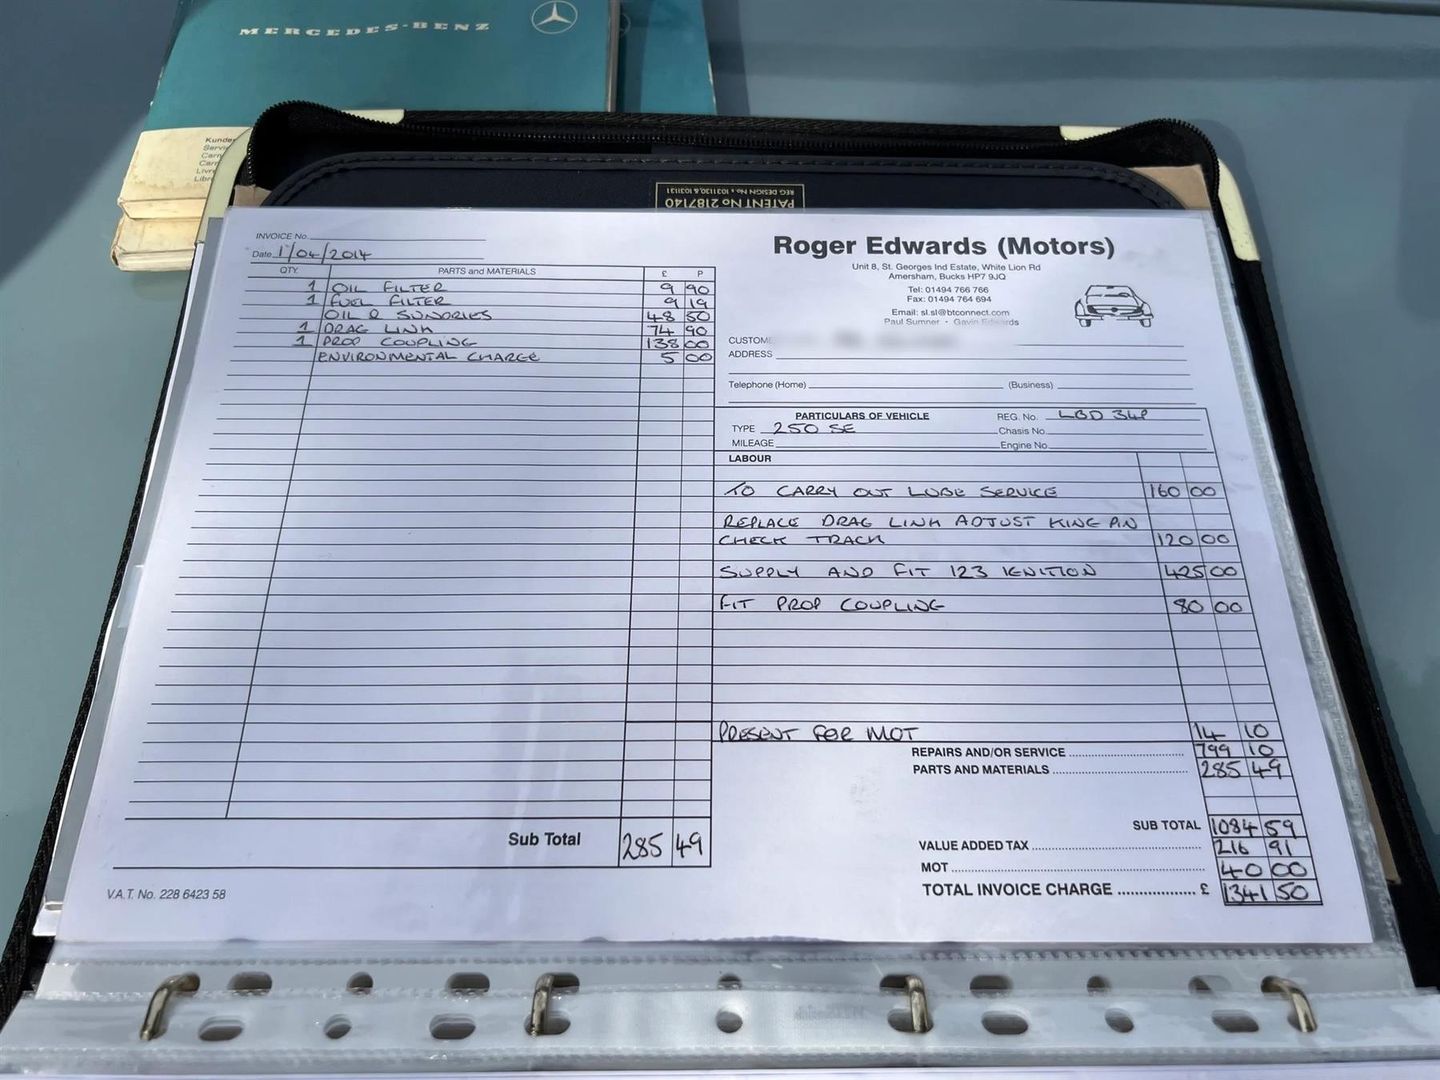 MERCEDES-BENZ
REG DESIGN No's 1031130, & 1031131
PATENT No 2187140
INVOICE No.
Date 1/04/2014
QTY. PARTS and MATERIALS £ P
1 OIL FILTER 9 90
1 FUEL FILTER 9 19
OIL & SUNDRIES 48 50
1 DRAG LINK 74 90
1 PROP COUPLING 138 00
ENVIRONMENTAL CHARGE 5 00
Sub Total 285 49
V.A.T. No. 228 6423 58
Roger Edwards (Motors)
Unit 8, St. Georges Ind Estate, White Lion Rd
Amersham, Bucks HP7 9JQ
Tel: 01494 766 766
Fax: 01494 764 694
Email: sl.sl@btconnect.com
Paul Sumner • Gavin Edwards
ADDRESS
Telephone (Home) (Business)
PARTICULARS OF VEHICLE REG. No. LBD 34P
TYPE 250 SE Chasis No.
MILEAGE Engine No.
LABOUR
TO CARRY OUT LUBE SERVICE 160 00
REPLACE DRAG LINK ADJUST KING PIN
CHECK TRACK 120 00
SUPPLY AND FIT 123 IGNITION 425 00
FIT PROP COUPLING 80 00
PRESENT FOR MOT 14 10
REPAIRS AND/OR SERVICE 799 10
PARTS AND MATERIALS 285 49
SUB TOTAL 1084 59
VALUE ADDED TAX 216 91
MOT 40 00
TOTAL INVOICE CHARGE £ 1341 50